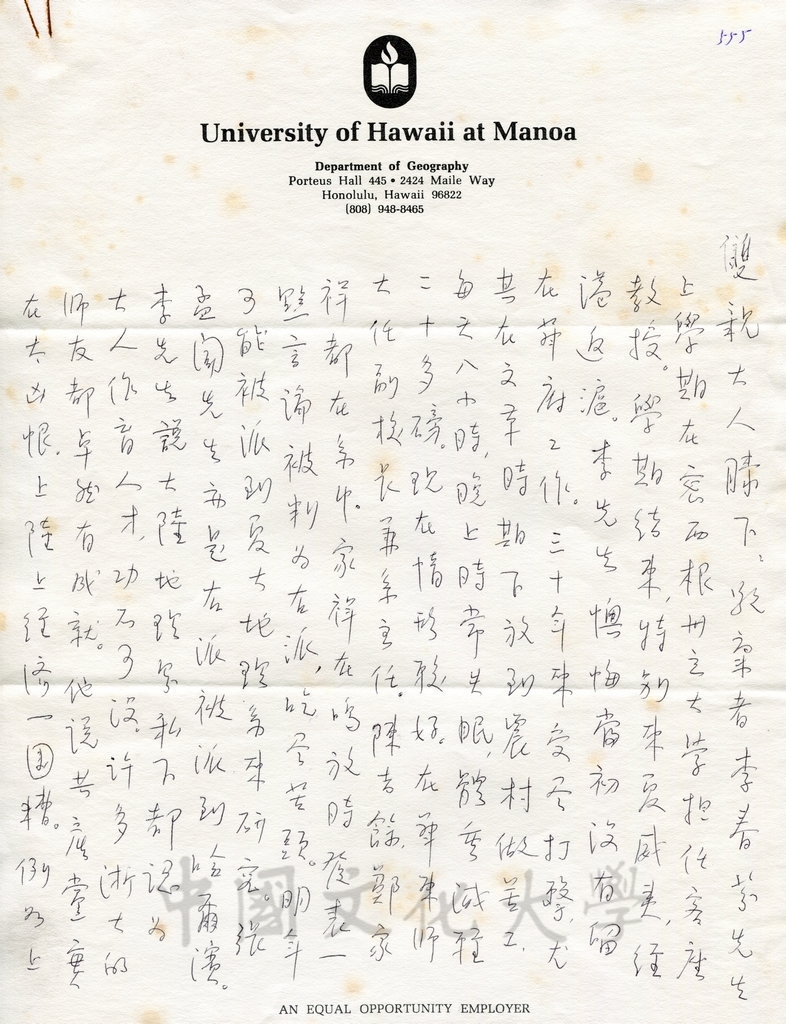 555
University of Hawaii at Manoa
Department of Geography
Porteus Hall 445 • 2424 Maile Way
Honolulu, Hawaii 96822
(808) 948-8465
雙親大人膝下：敬稟者李春芬先生
上學期在密西根州立大學担任客座
教授。學期結束，特別來夏威夷，經
港返滬。李先生懊悔當初沒有留
在華府工作。三十年來受尽打擊，尤
其在文革時期下放到農村做苦工，
每天八小時，晚上時常失眠，體重減輕
二十多磅。現在情形較好。在華東師
大任副校長兼系主任。陳吉餘，鄭家
祥都在系中。家祥在鳴放時發表一
點言論被判为右派，吃尽苦頭。明年
可能被派到夏大地理系來研究。張
孟聞先生亦是右派被派到哈爾濱。
李先生說大陸地理界私下都認为
大人作育人才，功不可沒。許多浙大的
师友都卓然有成就。他說共産黨實
在太凶恨，上陸上经济一团糟。例如上
中國文化大學
AN EQUAL OPPORTUNITY EMPLOYER